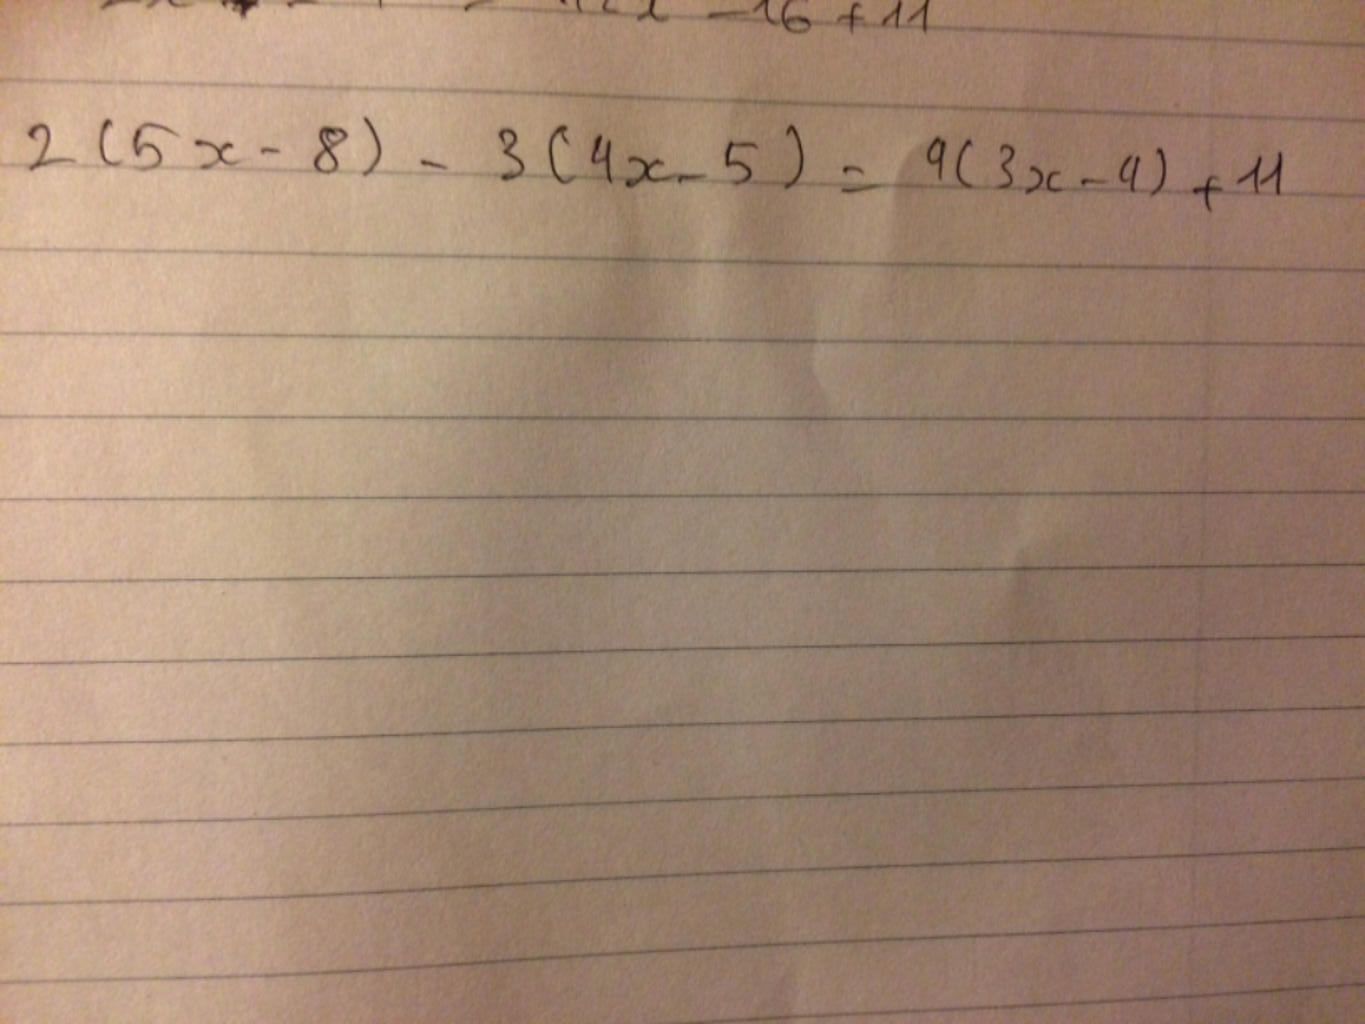 - 16 + 11
2(5x - 8) - 3(4x - 5) = 4(3x - 4) + 11